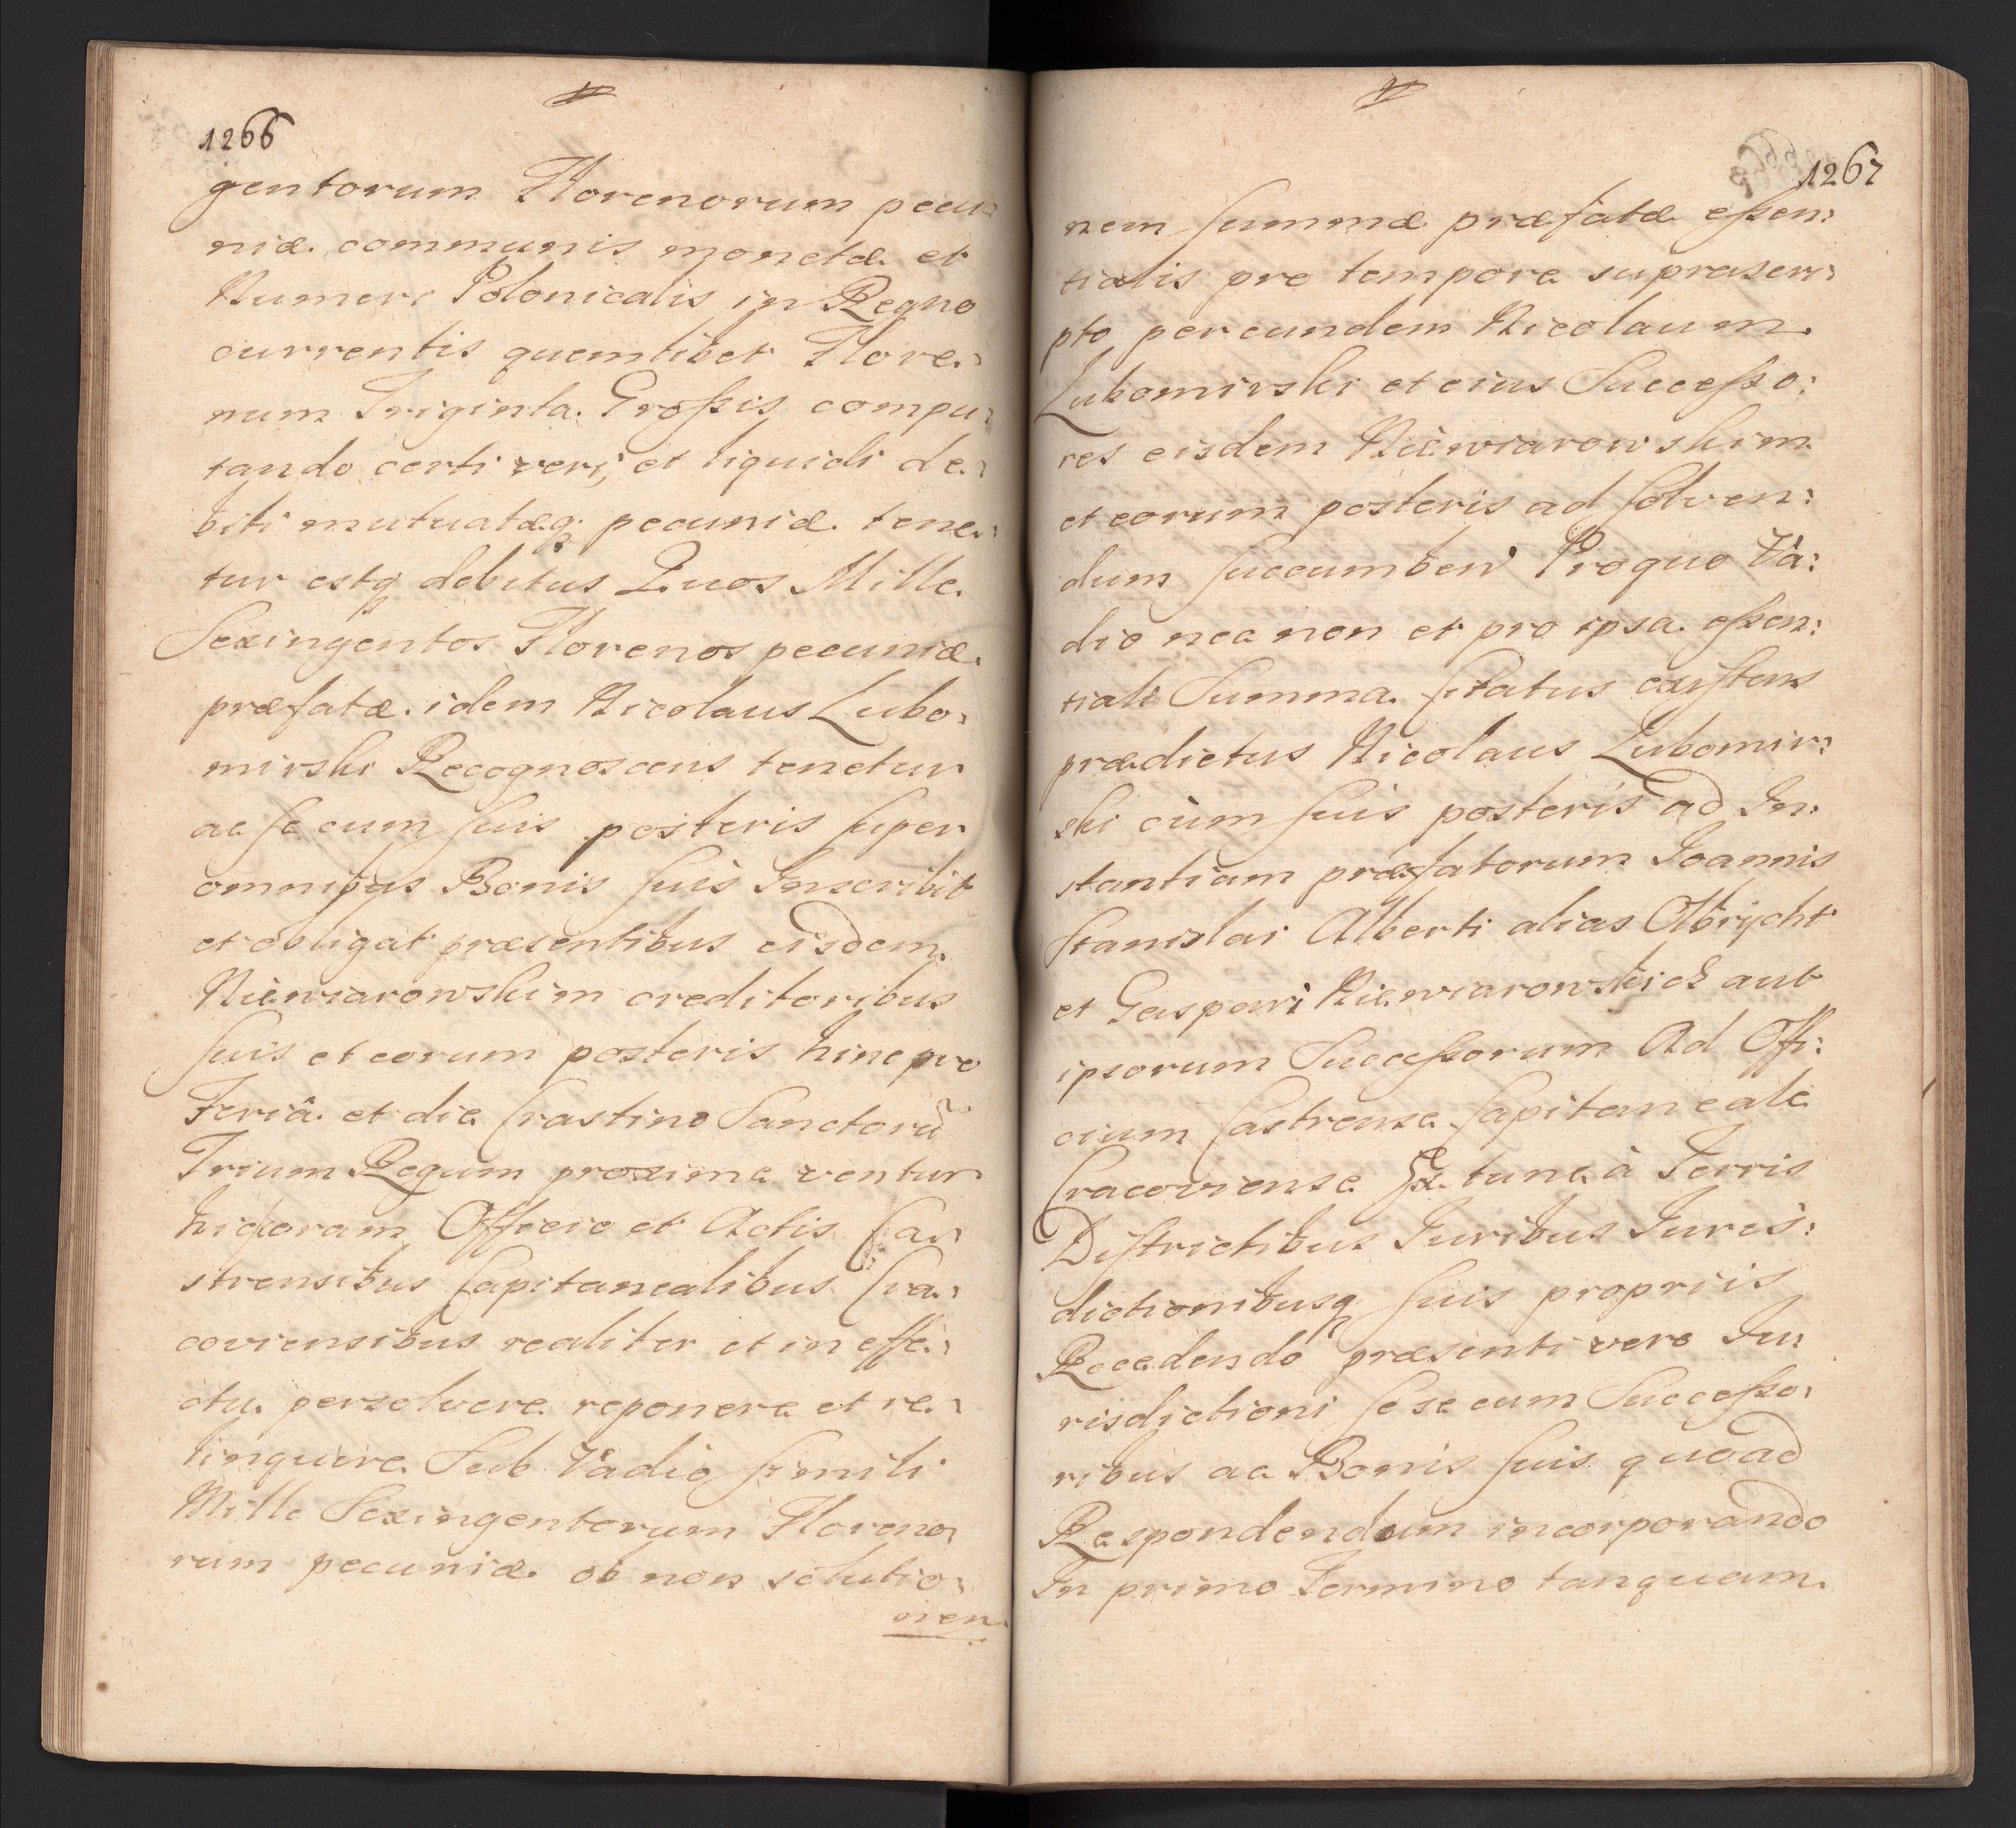 1266
gentorum Florenorum pecu=
niæ communis monetæ et
Numeri Polonicalis in Regno
currentis quemlibet Flore=
num Triginta Grossis compu=
tando certi veri, et liquidi de=
biti mutuatæq; pecuniæ tene=
tur estq debitus Quos Mille
Sexingentos Florenos pecuniæ
præfatæ idem Nicolaus Lubo=
mirski Recognoscens tenetur
ac se cum suis posteris super
omnibus Bonis suis Inscribit
et obligat præsentibus eisdem
Niewiarowskim creditoribus
suis et eorum posteris hinc pro
Feriâ et die Crastino Sanctorũ
Trium Regum proxime ventur
hic coram Officio et Actis Ca=
strensibus Capitanealibus Cra=
coviensibus realiter et in effe=
ctu persolvere reponere et re=
linquere Sub Vadio simili
Mille Sexingentorum Floreno=
rum pecuniæ ob non solutio=
nem
1267
nem summæ præfatæ essen:
tialis pro tempore suprascri=
pto per eundem Nicolaum
Lubomirski et eius Successo:
res eisdem Niewiarowskim
et eorum posteris ad solven:
dum succumben Pro quo Va:
dio nec non et pro ipsa essen:
tiali Summa citatus existens
prædictus Nicolaus Lubomir:
ski cum suis posteris ad In:
stantiam præfatorum Joannis
Stanislai Alberti alias Olbrycht
et Gaspari Niewiarowskich aut
ipsorum Successorum Ad Offi:
cium Castrense Capitaneale
Cracoviense Ex tunc à Terris
Districtibus Iuribus Iuris:
dictionibusq suis propriis
Recedendo præsenti vero Iu:
risdictioni se se cum Successo:
ribus ac Bonis suis quoad
Respondendum incorporando
In primo Termino tanquam